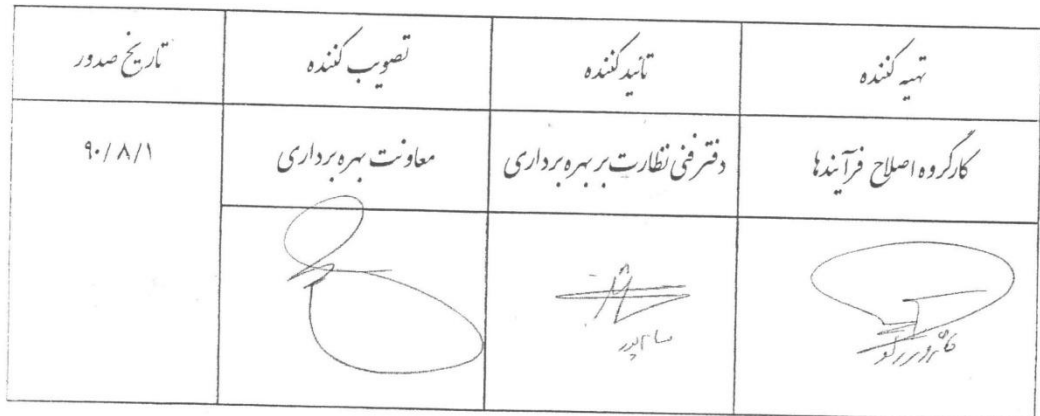 تهیه کننده
تائید کننده
تصویب کننده
تاریخ صدور
کارگروه اصلاح فرآیندها
دفتر فنی نظارت بر بهره برداری
معاونت بهره برداری
۹۰/۸/۱